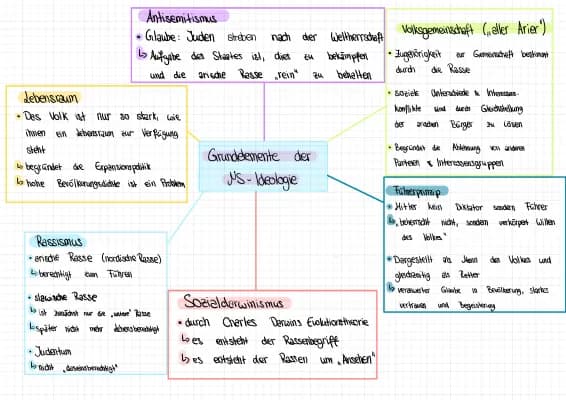 Antisemitismus
• Glaube: Juden streben nach der Weltherrschaft
↳ Aufgabe des Staates ist, dies zu bekämpfen
und die arische Rasse „rein" zu behalten
Volksgemeinschaft („aller Arier")
• Zugehörigkeit zur Gemeinschaft bestimmt
durch die Rasse
• soziale Unterschiede & Interessens-
konflikte sind durch Gleichstellung
der arischen Bürger zu lösen
• Begründet die Ablehnung von anderen
Parteien & Interessensgruppen
Lebensraum
• Das Volk ist nur so stark, wie
ihnen ein Lebensraum zur Verfügung
steht
↳ begründet die Expansionspolitik
↳ hohe Bevölkerungsdichte ist ein Problem
Grundelemente der
NS-Ideologie
Führerprinzip
• Hitler kein Diktator sondern Führer
↳ „beherrscht nicht, sondern verkörpert Willen
des Volkes"
• Dargestellt als Mann des Volkes und
gleichzeitig als Retter
↳ Glaube in Bevölkerung, starkes
vertrauen und Begeisterung
Rassismus
• arische Rasse (nordische Rasse)
↳ berechtigt zum Führen
• slawische Rasse
↳ ist zunächst nur die Rasse
↳ später nicht mehr lebensberechtigt
• Judentum
↳ nicht „daseinsberechtigt"
Sozialdarwinismus
• durch Charles Darwins Evolutionstheorie
↳ es entsteht der Rassenbegriff
↳ es entsteht der Rassen um „Ansehen"